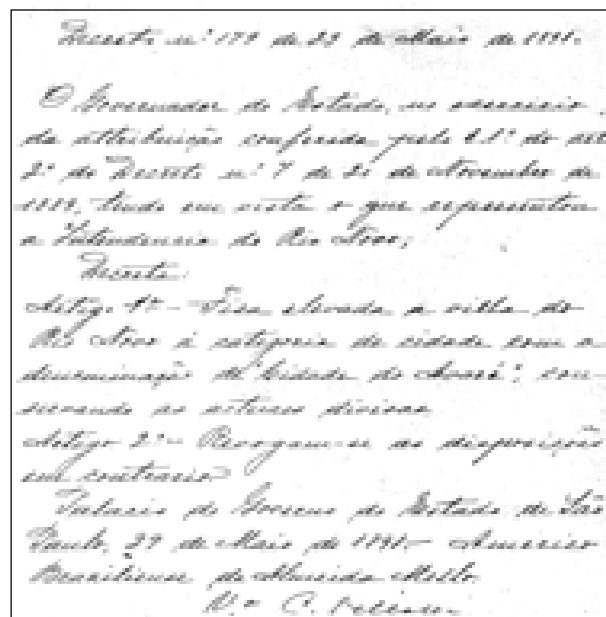 Decreto n.º 179 de 29 de Maio de 1891.
O Governador do Estado, no exercicio
da attribuição conferida pelo § 1.º do art
2.º do Decreto n.º 7 de 20 de Novembro de
1889, tendo em vista o que representou
a Intendencia do Rio Novo;
Decreta:
Artigo 1.º - Fica elevada a villa do
Rio Novo á categoria de cidade com a
denominação de "Cidade do Avaré", con-
servando as actuaes divisas
Artigo 2.º - Revogam-se as disposições
em contrario
Palacio do Governo do Estado de São
Paulo, 29 de Maio de 1891 - Americo
Brasiliense de Almeida Mello.